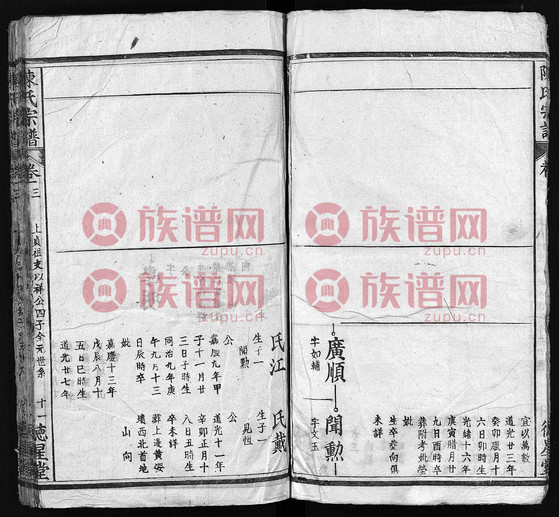 陳氏宗譜
卷
德星堂
宜以萬數
道光廿三年
癸卯臘月十
六日卯時生
光緒十六年
庚寅腊月廿
九日酉時卒
葬附考妣塋
妣
生卒葬向俱
未詳
聞勳
字文玉
廣順
字如輔
氏戴
生子一
見恆
公
道光十一年
辛卯正月十
八日丑時生
卒未詳
葬上邊黃
壪西北首地
山向
氏江
生子一
聞勳
公
嘉慶九年甲
子十一月廿
三日子時生
同治九年庚
午九月十三
日辰時卒
妣
嘉慶十三年
戊辰八月十
五日巳時生
道光廿七年
陳氏宗譜
卷三
上貞祖支以祥公四子全元世系
十一
德星堂
族谱网
zupu.cn
族谱网
zupu.cn
族谱网
zupu.cn
族谱网
zupu.cn